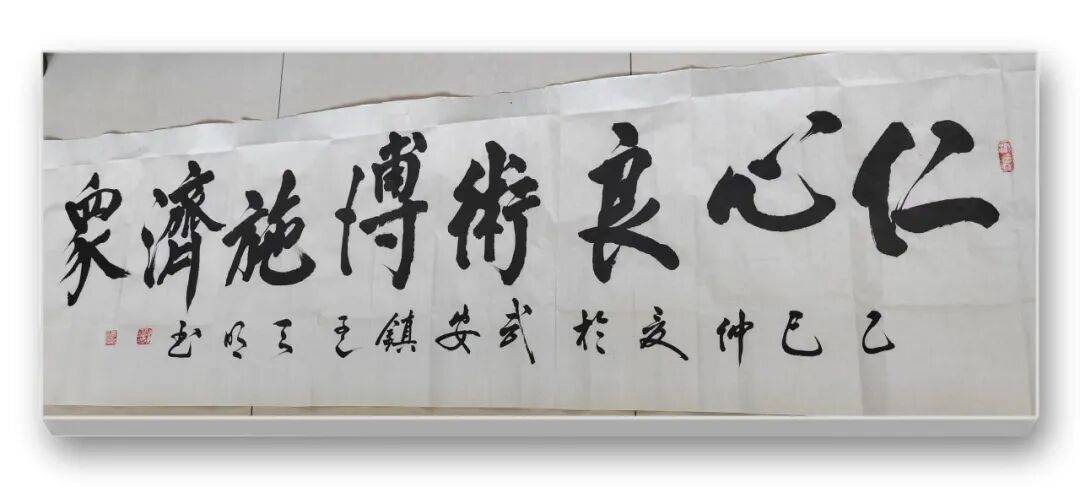 仁心良術博施濟衆
乙巳仲夏於武安鎮王天明书